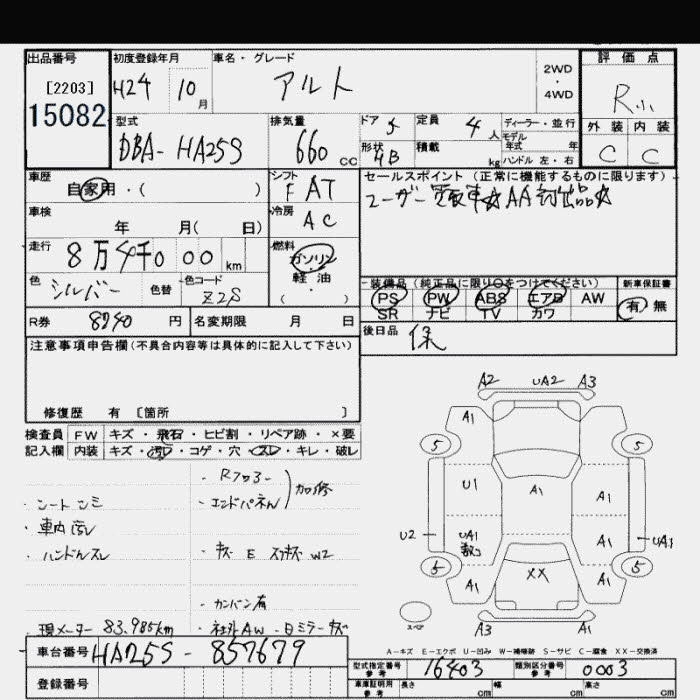 出品番号 初度登録年月 車名・グレード 評価点
[2203] H24 10月 アルト 2WD・4WD R
15082 外装 内装
型式 排気量 ドア 5 定員 4人 ディーラー・並行 C C
DBA-HA25S 660cc 形状 4B 積載 kg モデル年式 年
ハンドル 左・右
車歴 自家用・( ) シフト F AT セールスポイント(正常に機能するものに限ります)
車検 年 月( 日) 冷房 AC ユーザー買取車☆AA初出品☆
走行 8万4千000km 燃料 ガソリン・軽油・( )
色 シルバー 色替 色コード Z2S 装備品(純正品に限り○をつけてください) 新車保証書
PS PW ABS エアB AW 有・無
SR ナビ TV カワ
R券 8240円 名変期限 月 日 後日品 保
注意事項申告欄(不具合内容等は具体的に記入して下さい)
修復歴 有 [箇所 ]
検査員 FW キズ・飛石・ヒビ割・リペア跡・×要
記入欄 内装 キズ・汚レ・コゲ・穴・スレ・キレ・破レ
・Rフロアー
・シートシミ ・エンドパネル
・車内汚レ
・ハンドルスレ ・キズ E W2
・カンバン有
現メーター 83,985km ・社外AW ・日ミラーキズ
A2 UA2 A3
A1
5 5
U1 A1 A1
U2 UA1 A1 UA1
5 5
A1 XX A1
スペア A3 A1
A-キズ E-エクボ U-凹み W-補修跡 S-サビ C-腐食 XX-交換済
車台番号 HA25S-857679 型式指定番号 参考 16403 類別区分番号 参考 0003
登録番号 車庫証明用 参考 長さ cm 幅 cm 高さ cm